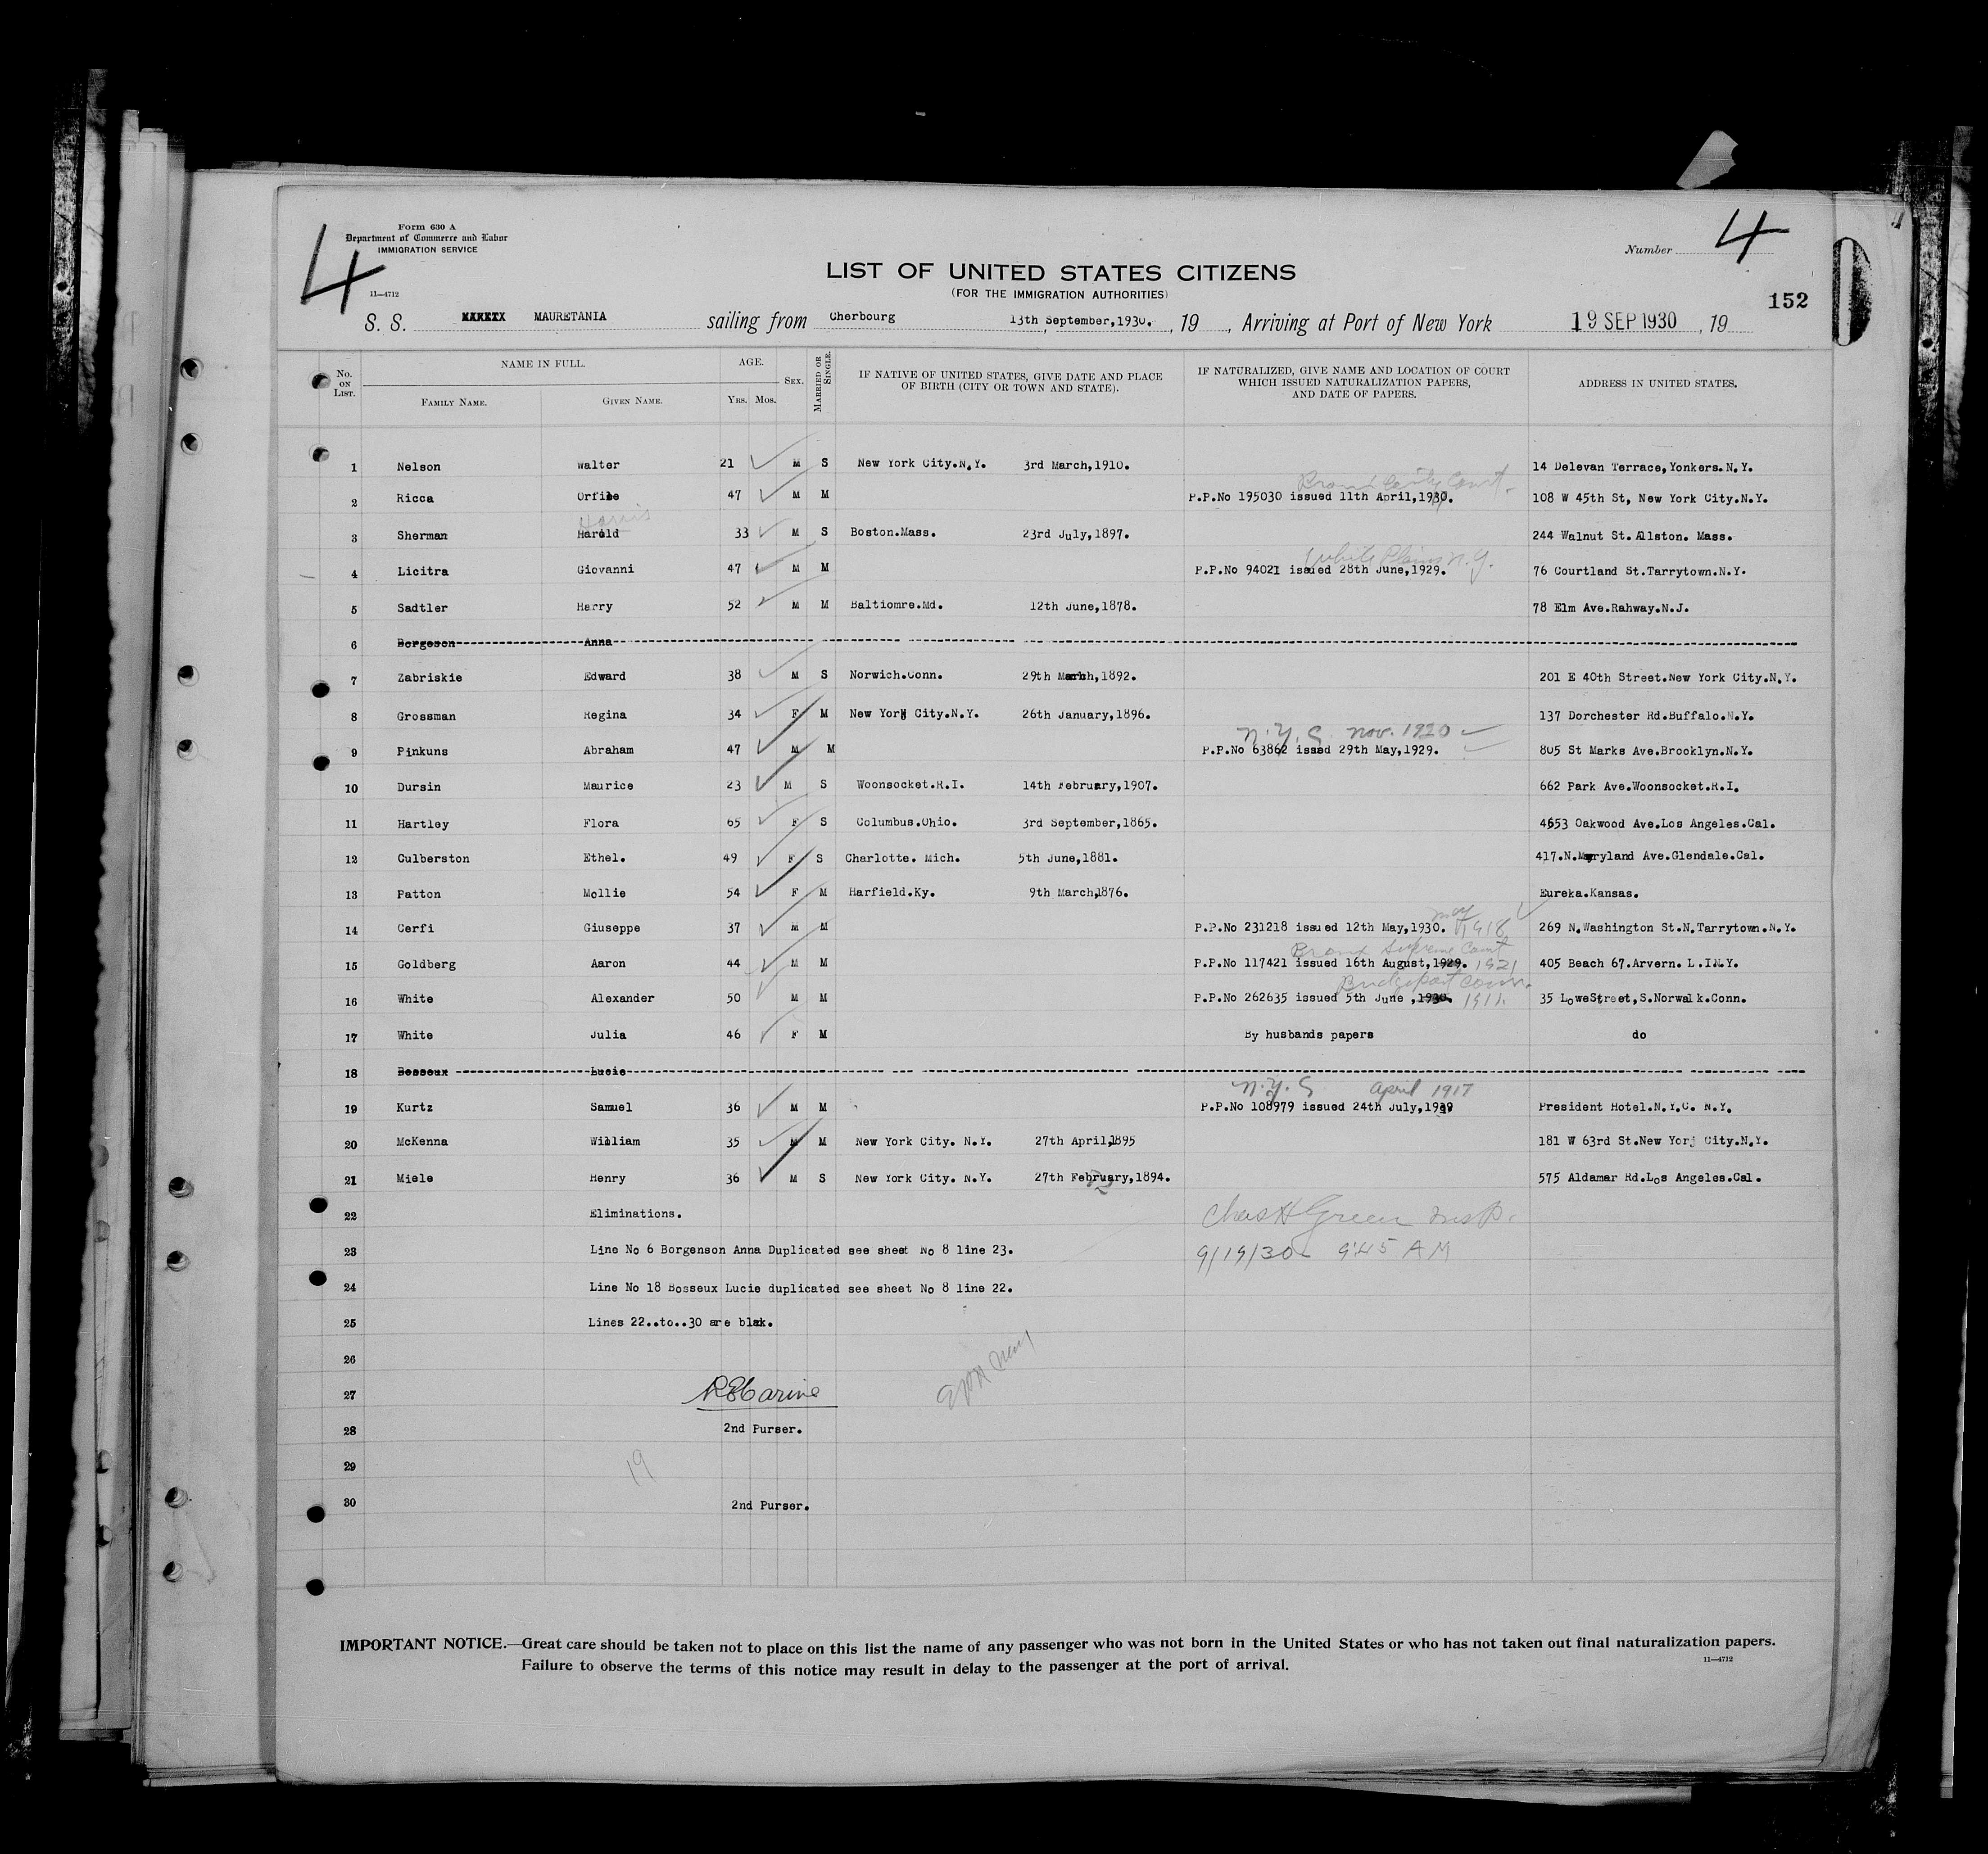 Form 630 A
Department of Commerce and Labor
IMMIGRATION SERVICE
4
11—4712
Number 4
LIST OF UNITED STATES CITIZENS
(FOR THE IMMIGRATION AUTHORITIES)
152
S. S. MAURETANIA sailing from Cherbourg 13th September,1930. , 19 , Arriving at Port of New York 19 SEP 1930 , 19
No. ON LIST. NAME IN FULL. AGE. SEX. MARRIED OR SINGLE. IF NATIVE OF UNITED STATES, GIVE DATE AND PLACE OF BIRTH (CITY OR TOWN AND STATE). IF NATURALIZED, GIVE NAME AND LOCATION OF COURT WHICH ISSUED NATURALIZATION PAPERS, AND DATE OF PAPERS. ADDRESS IN UNITED STATES.
FAMILY NAME. GIVEN NAME. YRS. MOS.
1 Nelson Walter 21 M S New York City.N.Y. 3rd March,1910. 14 Delevan Terrace,Yonkers.N.Y.
Court.
2 Ricca 47 M M P.P.No 195030 issued 11th April,1930. 108 W 45th St, New York City.N.Y.
Harris
3 Sherman Harold 33 M S Boston.Mass. 23rd July,1897. 244 Walnut St.Allston. Mass.
White Plains N.Y.
4 Licitra Giovanni 47 M M P.P.No 94021 issued 28th June,1929. 76 Courtland St.Tarrytown.N.Y.
5 Sadtler Harry 52 M M Baltiomre.Md. 12th June,1878. 78 Elm Ave.Rahway.N.J.
6 Borgeson Anna
7 Zabriskie Edward 38 M S Norwich.Conn. 29th March,1892. 201 E 40th Street.New York City.N.Y.
8 Grossman Regina 34 F M New York City.N.Y. 26th January,1896. 137 Dorchester Rd.Buffalo.N.Y.
N.Y.S. Nov. 1920
9 Pinkuns Abraham 47 M M P.P.No 63862 issed 29th May,1929. 805 St Marks Ave.Brooklyn.N.Y.
10 Dursin Maurice 23 M S Woonsocket.R.I. 14th February,1907. 662 Park Ave.Woonsocket.R.I.
11 Hartley Flora 65 F S Columbus.Ohio. 3rd September,1865. 4653 Oakwood Ave.Los Angeles.Cal.
12 Culberston Ethel. 49 F S Charlotte. Mich. 5th June,1881. 417.N.Maryland Ave.Glendale.Cal.
13 Patton Mollie 54 F M Harfield.Ky. 9th March,1876. Eureka.Kansas.
May
14 Cerfi Giuseppe 37 M M P.P.No 231218 issued 12th May,1930. 1918 269 N.Washington St.N.Tarrytown.N.Y.
Bronx Supreme Court
15 Goldberg Aaron 44 M M P.P.No 117421 issued 16th August,1929. 1921 405 Beach 67.Arvern. L.I.N.Y.
Bridgeport Conn.
16 White Alexander 50 M M P.P.No 262635 issued 5th June ,1930. 1911. 35 LoweStreet,S.Norwalk.Conn.
17 White Julia 46 F M By husbands papers do
18 Bosseux Lucie
N.Y.S April 1917
19 Kurtz Samuel 36 M M P.P.No 108979 issued 24th July,1929 President Hotel.N.Y.C. N.Y.
20 McKenna William 35 M M New York City. N.Y. 27th April,1895 181 W 63rd St.New Yorj City.N.Y.
21 Miele Henry 36 M S New York City. N.Y. 27th February,1894. 575 Aldamar Rd.Los Angeles.Cal.
22 Eliminations. Chas H Green Insp.
23 Line No 6 Borgenson Anna Duplicated see sheet No 8 line 23. 9/19/30 9:45 AM
24 Line No 18 Bosseux Lucie duplicated see sheet No 8 line 22.
25 Lines 22..to..30 are blak.
26
27
28 2nd Purser.
29 19
30 2nd Purser.
IMPORTANT NOTICE.—Great care should be taken not to place on this list the name of any passenger who was not born in the United States or who has not taken out final naturalization papers.
Failure to observe the terms of this notice may result in delay to the passenger at the port of arrival.
11—4712